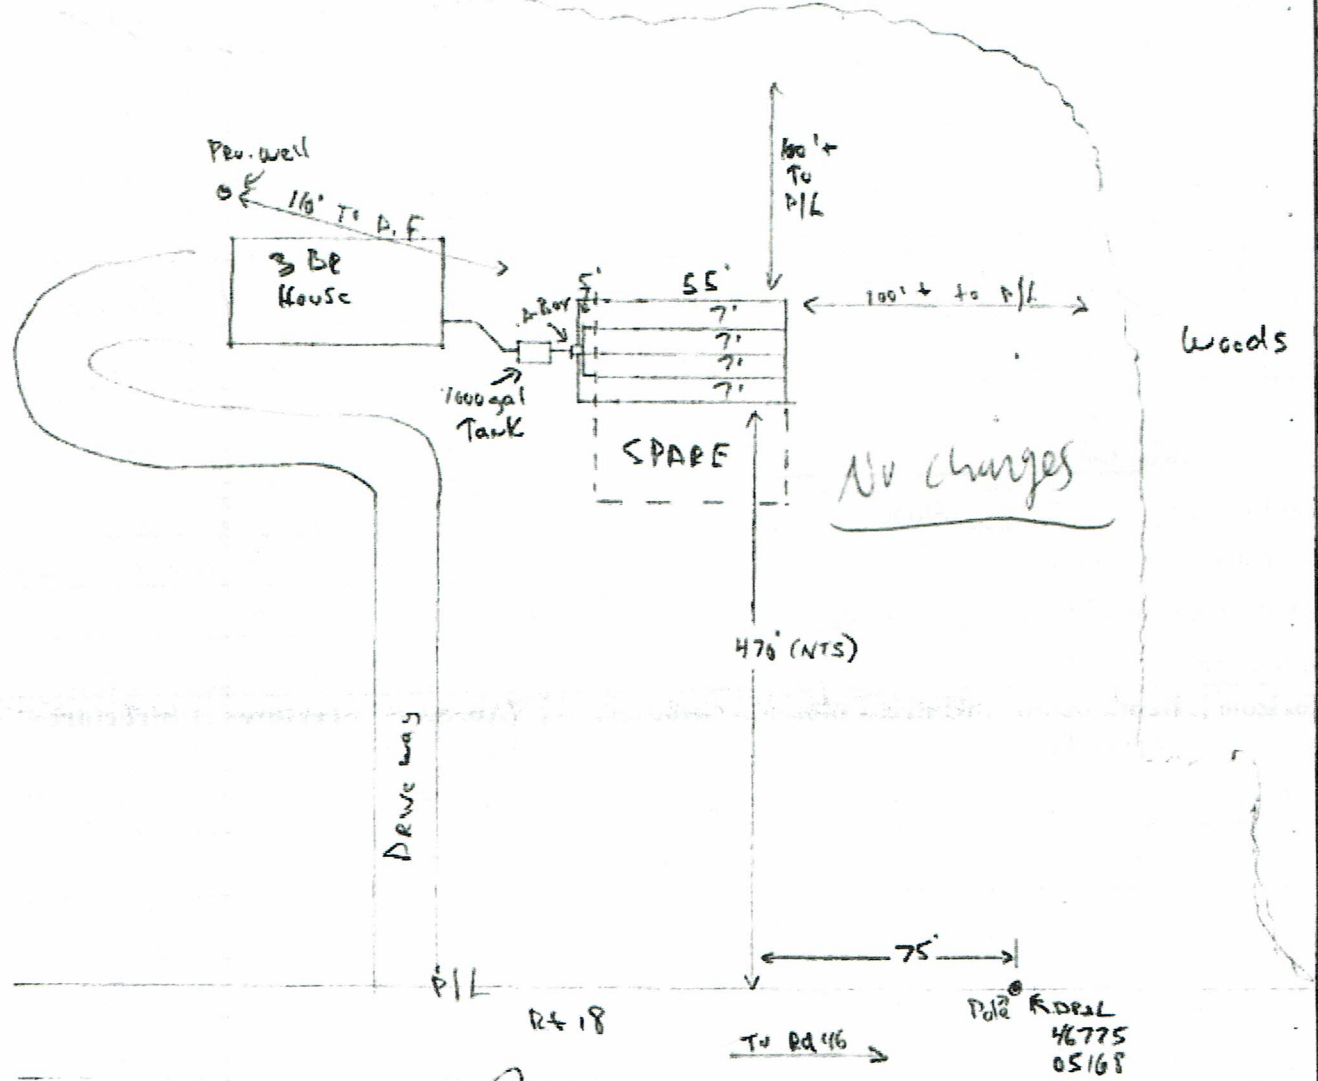 Prv. well
110' To A.F.
3 BR
House
100'+
To
P/L
5'
55'
100'+ to P/L
7'
7'
7'
7'
1000 gal
Tank
SPARE
Woods
No changes
470' (NTS)
Driveway
75'
P/L
Rt 18
To Rd 46
Pole
DP&L
46775
05168